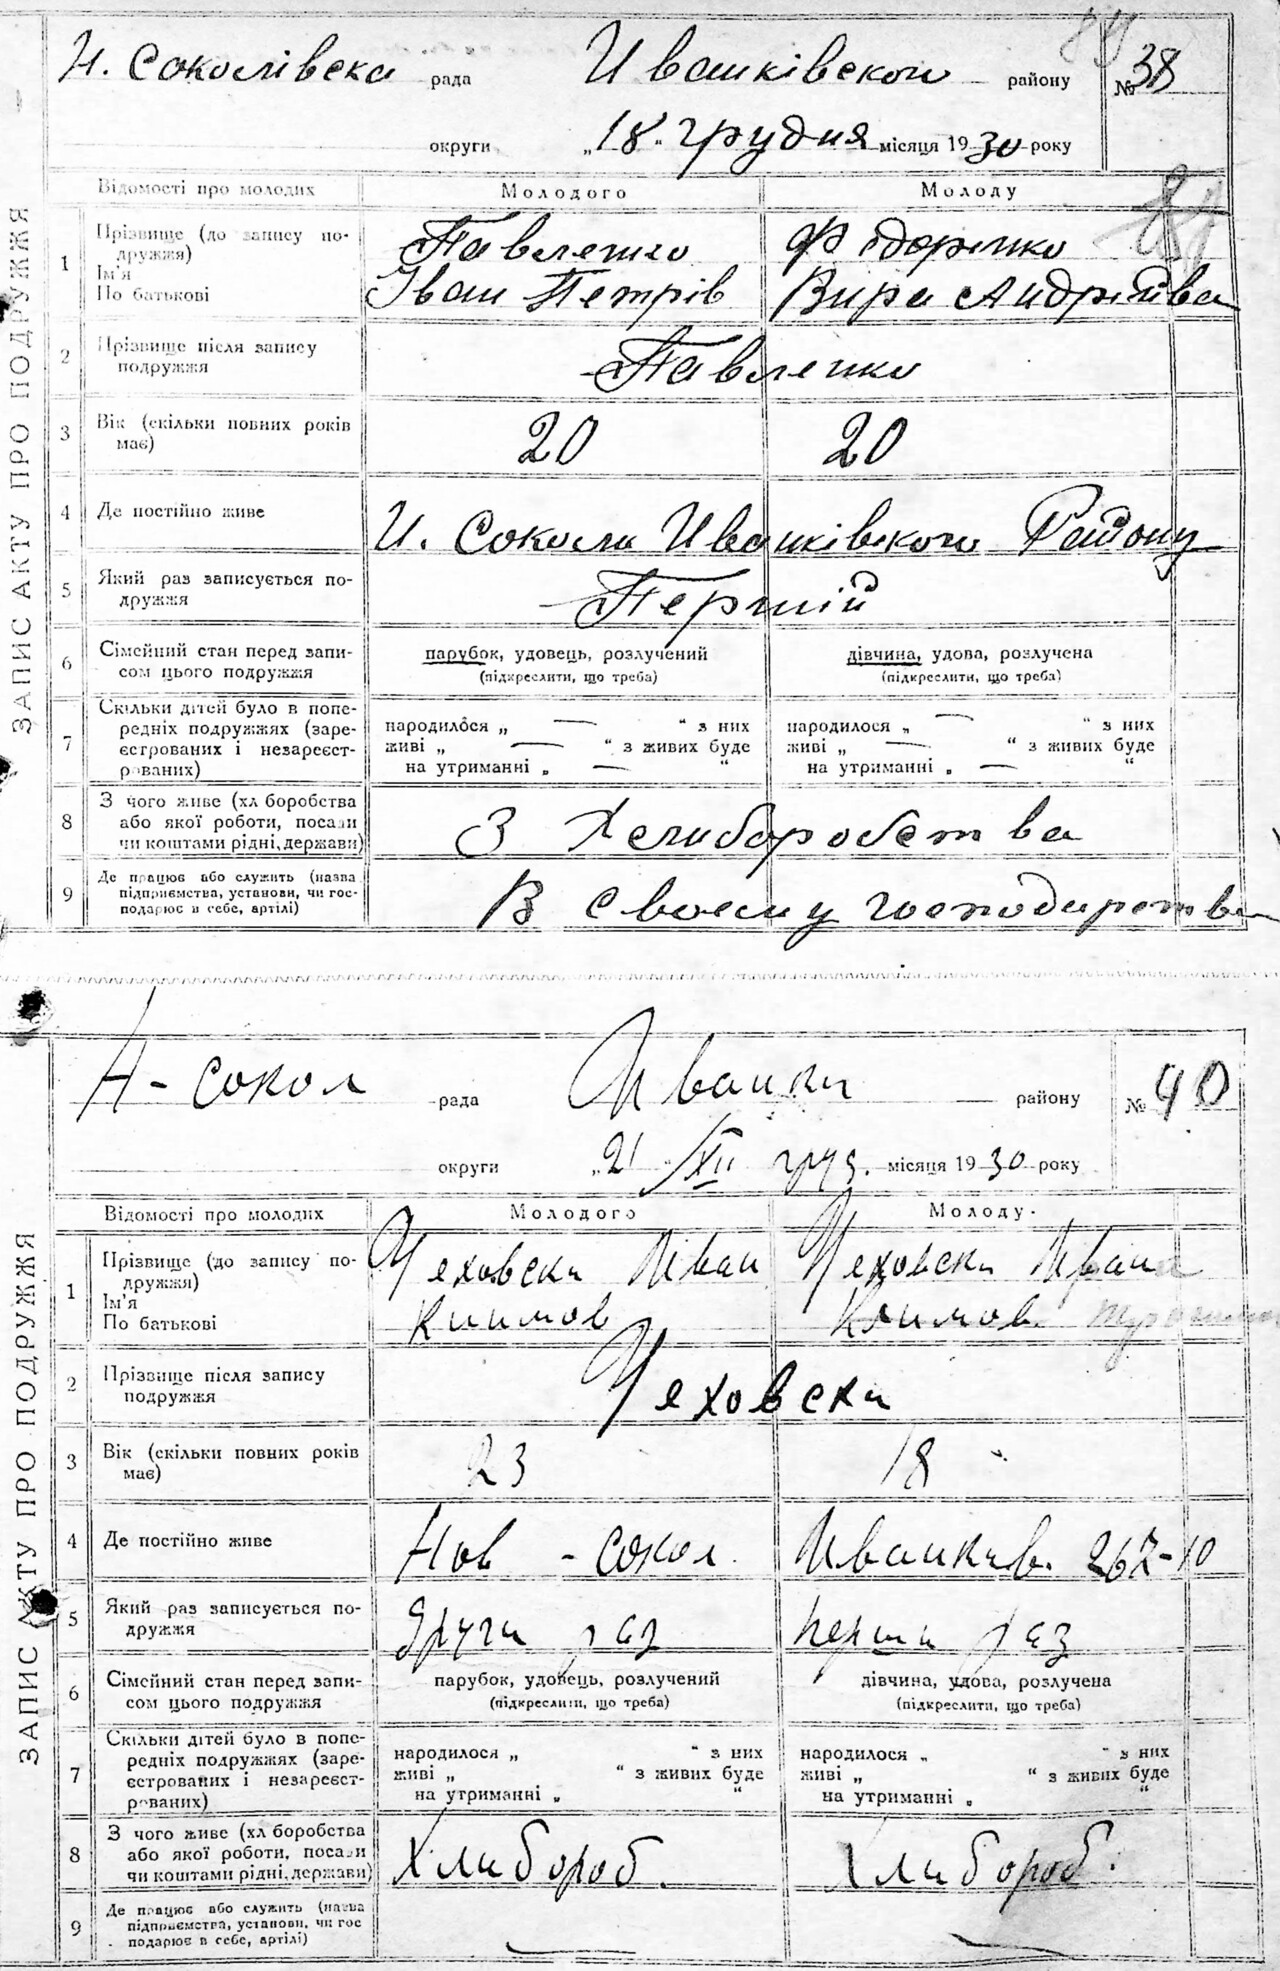 Н. Соколівска рада Ивашківского району № 38
округи „18“ грудня місяця 1930 року
ЗАПИС АКТУ ПРО ПОДРУЖЖЯ
Відомості про молодих Молодого Молоду
1 Прізвище (до запису по- Павленко Федоренко
дружжя)
Ім'я Іван Петрів Вира Андріївна
По батькові
2 Прізвище після запису Павленко
подружжя
3 Вік (скільки повних років 20 20
має)
4 Де постійно живе Н. Соколи Ивашківского Району
5 Який раз записується по- Перший
дружжя
6 Сімейний стан перед запи- парубок, удовець, розлучений дівчина, удова, розлучена
сом цього подружжя (підкреслити, що треба) (підкреслити, що треба)
7 Скільки дітей було в попе-
редніх подружжях (заре- народилося „ — “ з них народилося „ — “ з них
єстрованих і незареєст- живі „ — “ з живих буде живі „ — “ з живих буде
рованих) на утриманні „ — “ на утриманні „ — “
8 З чого живе (хл боробства
або якої роботи, посади З Хлиборобства
чи коштами рідні, держави)
9 Де працює або служить (назва
підприємства, установи, чи гос- В своєму господарства
подарює в себе, артілі)
Н-сокол рада Иванки району № 40
округи „21 XII груд. місяця 1930 року
ЗАПИС АКТУ ПРО ПОДРУЖЖЯ
Відомості про молодих Молодого Молоду
1 Прізвище (до запису по- Чеховски Иван Чеховски
дружжя)
Ім'я Климов Климов.
По батькові
2 Прізвище після запису Чеховски
подружжя
3 Вік (скільки повних років 23 18
має)
4 Де постійно живе Нов - сокол. 262-10
5 Який раз записується по- други раз перши раз
дружжя
6 Сімейний стан перед запи- парубок, удовець, розлучений дівчина, удова, розлучена
сом цього подружжя (підкреслити, що треба) (підкреслити, що треба)
7 Скільки дітей було в попе-
редніх подружжях (заре- народилося „ “ з них народилося „ “ з них
єстрованих і незареєст- живі „ “ з живих буде живі „ “ з живих буде
рованих) на утриманні „ “ на утриманні „ “
8 З чого живе (хл боробства
або якої роботи, посади Хлибороб. Хлибороб.
чи коштами рідні, держави)
9 Де працює або служить (назва
підприємства, установи, чи гос — —
подарює в себе, артілі)